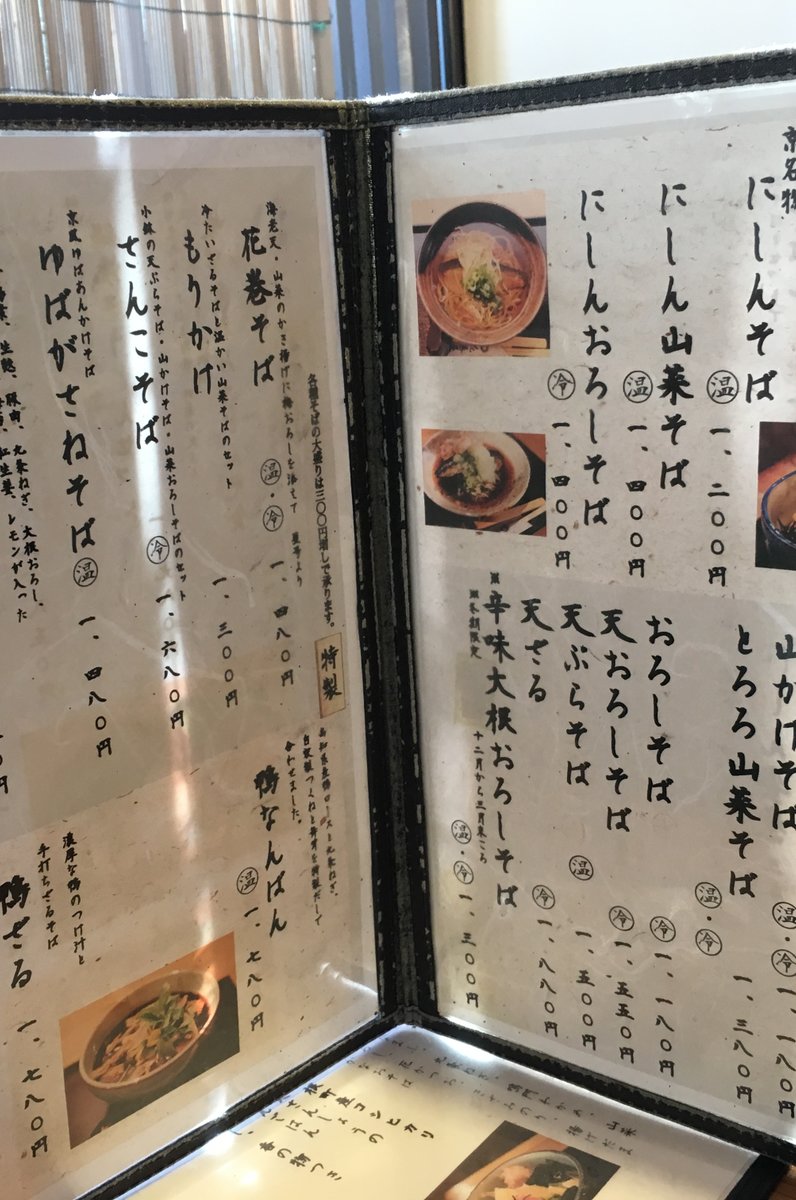 京名物
にしんそば
温 一、二〇〇円
にしん山菜そば
温 一、四〇〇円
にしんおろしそば
冷 一、四〇〇円
山かけそば
温・冷 一、一八〇円
とろろ山菜そば
温・冷 一、三八〇円
おろしそば
冷 一、一八〇円
天おろしそば
冷 一、五五〇円
天ぷらそば
温 一、五〇〇円
天ざる
冷 一、八八〇円
※辛味大根おろしそば
※冬期限定 十二月から三月末ごろ
温・冷 一、三〇〇円
各種そばの大盛りは三〇〇円増しで承ります。
海老天・山菜のかき揚げに梅おろしを添えて
花巻そば
温・冷 一、四八〇円
冷たいざるそばと温かい山菜そばのセット
もりかけ
一、三〇〇円
小鉢の天ぷらそば・山かけそば・山菜おろしそばのセット
さんこそば
冷 一、六八〇円
京風ゆばあんかけそば
ゆばがさねそば
温 一、四八〇円
九条ねぎ、大根おろし、
レモンが入った
特製
自家製つくねと
合わせました。
鴨なんばん
温 一、七八〇円
濃厚な鴨のつけ汁と
手打ちざるそば
鴨ざる
一、七八〇円
産コシヒカリ
香の物つき